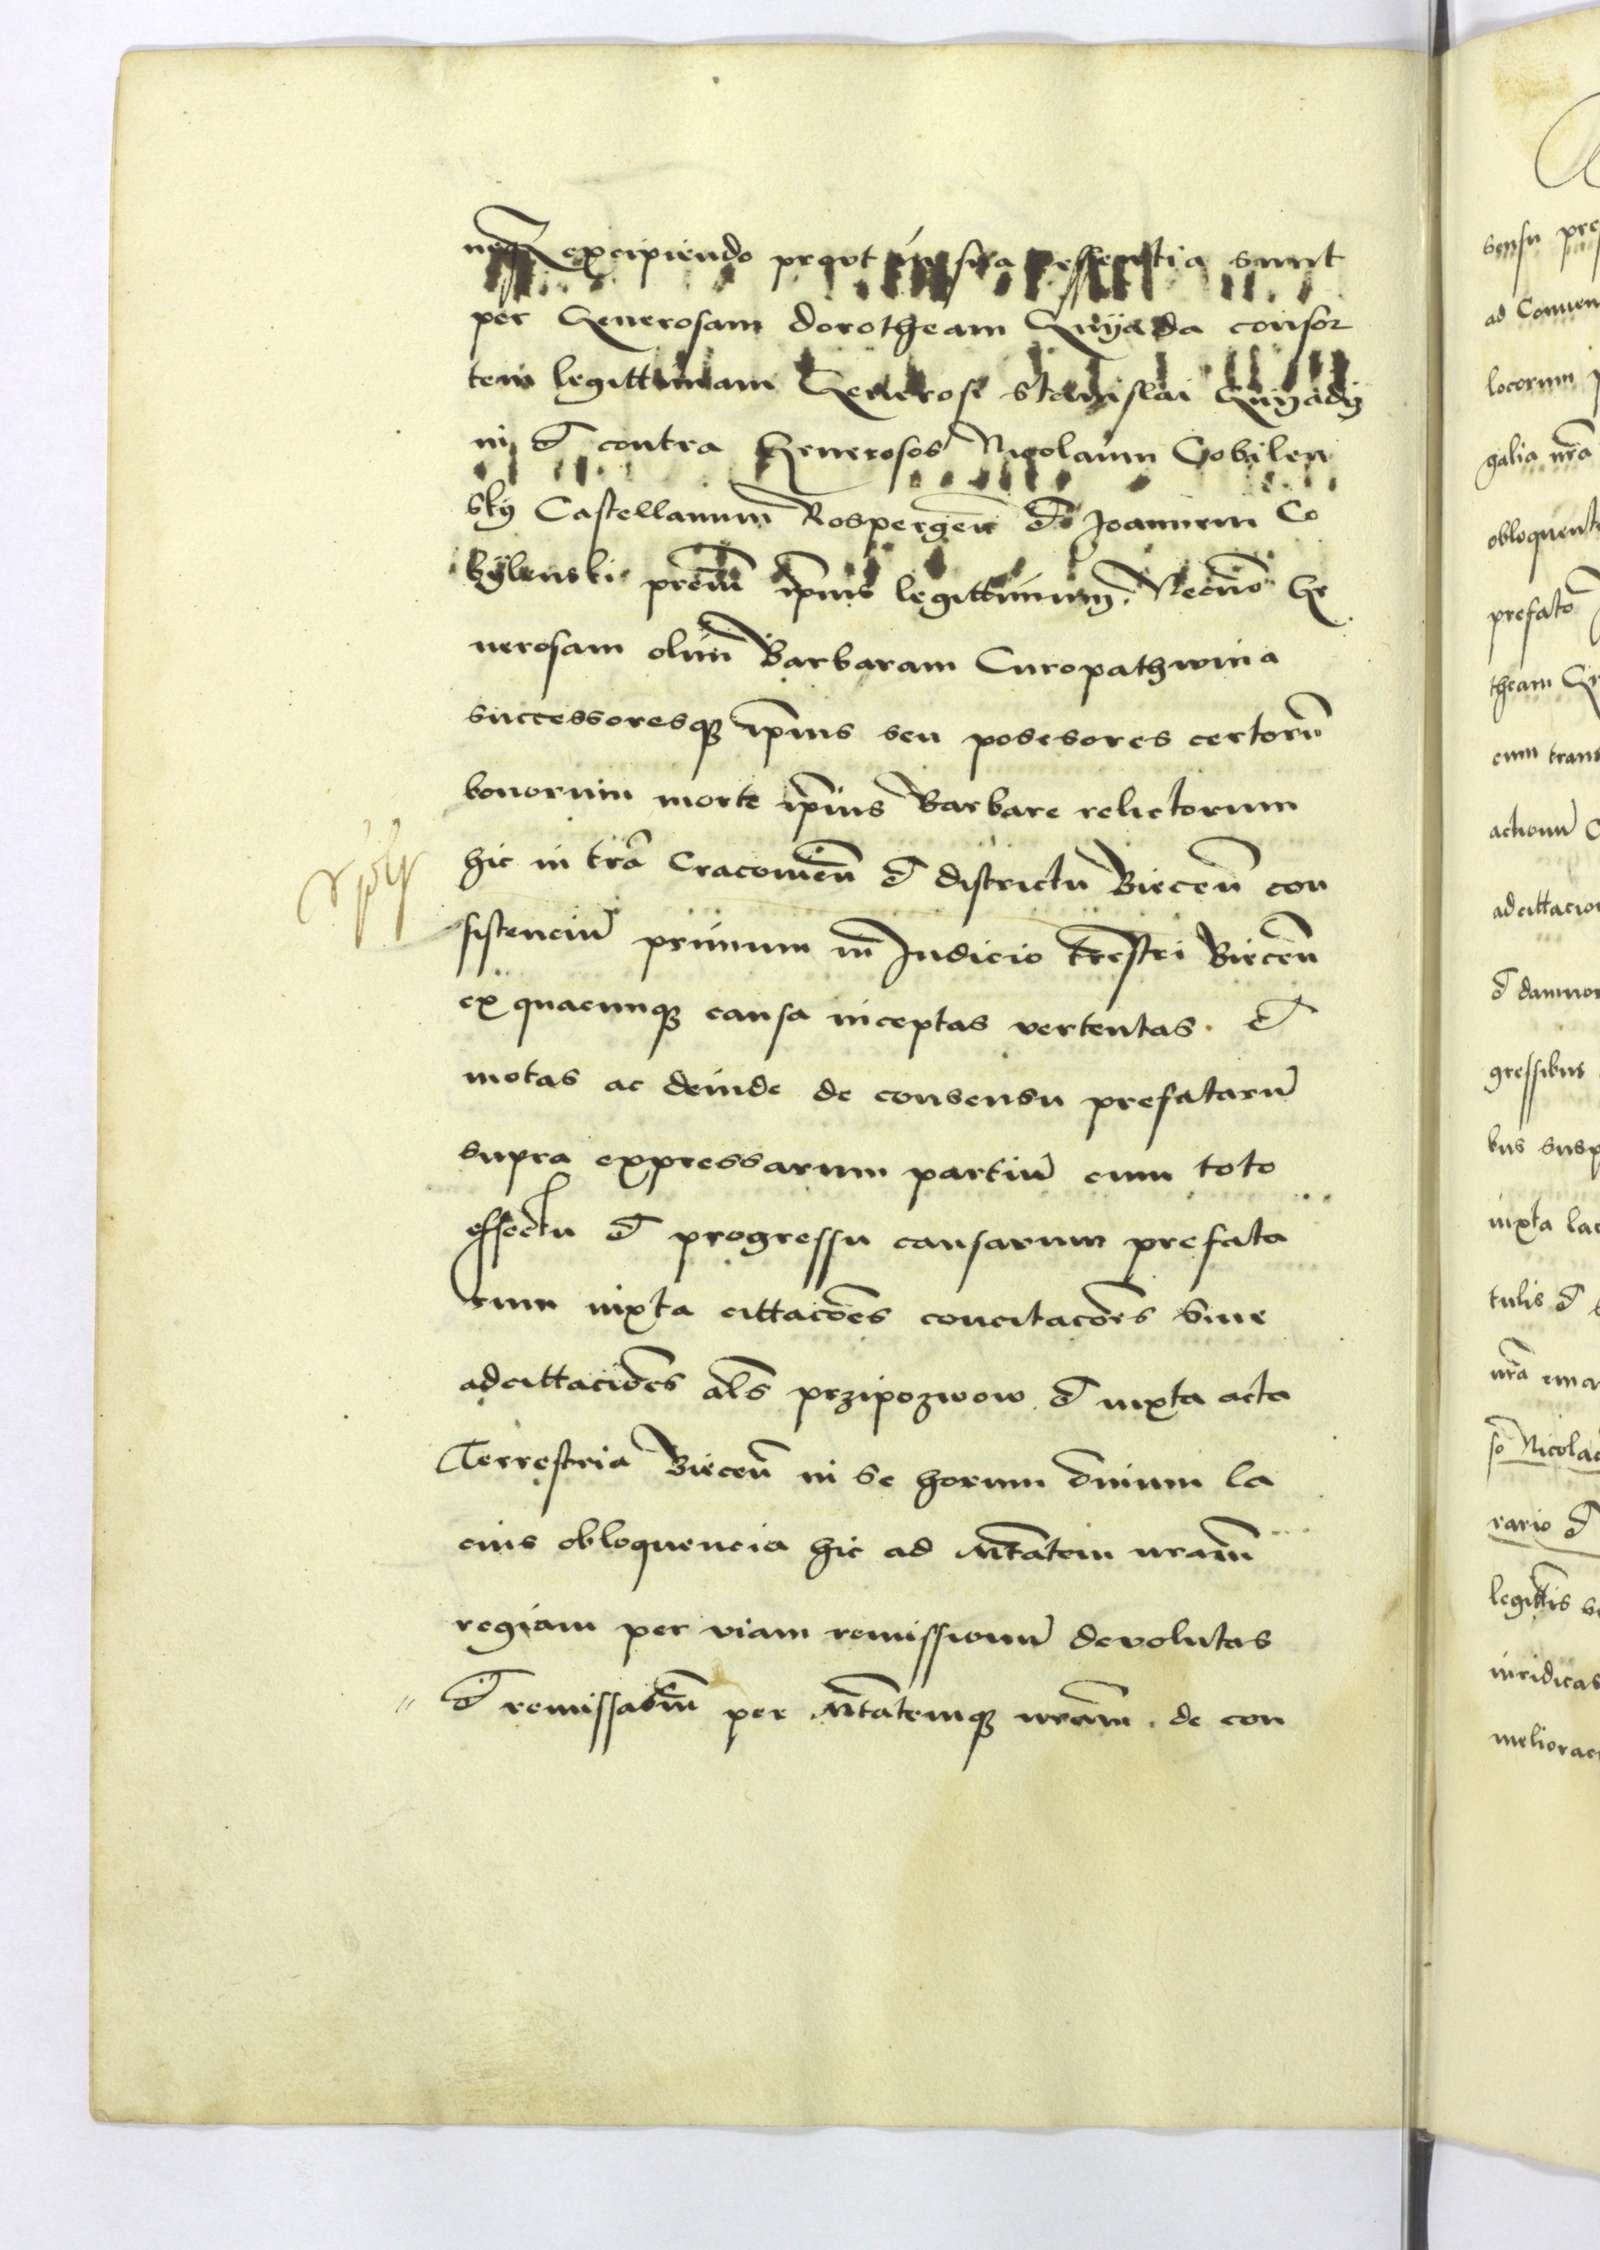 excipiendo prout in sua essentia sunt
per Generosam dorotheam Gnyada consor
tem legittimam Generosi Stanislai Gnyady
in et contra Generosos Nicolaum Cobilen
sky Castellanum Rospergeñ et Joannem Co
bÿlenski ip̃ius legittimum. Necnõ Ge
nerosam olim Barbaram Curopathwina
successoresqꝫ ip̃ius seu posesores certorũ
bonorum morte ip̃ius Barbare relictorum
hic in trã Cracovieñ et districtu Bieceñ con
sistenciũ primum in Judicio trestri Bieceñ
ex quacunqꝫ causa inceptas vertentas. et
motas ac deinde de consensu prefatarũ
supra expressarum partiũ cum toto
effectu et progressu causarum prefata
rum iuxta cittacões concitacões sive
adcittaciões alš przipozwow et iuxta acta
Terrestria Bieceñ in se horum õnium la
cius obloquencia hic ad Mtatem nrãm
regiam per viam remissionũ devolutas
et per Mtatemqꝫ nrãm. de con
sensu
ad Conven
locorum
galia nrã
obloquent
prefato
theam Gn
cum trans
actionũ
adcittacio
et damnor
gressibus
bus susp
iuxta la
tulis et
nrã
so Nicola
rario et
legittis
iuridicas
meliorac